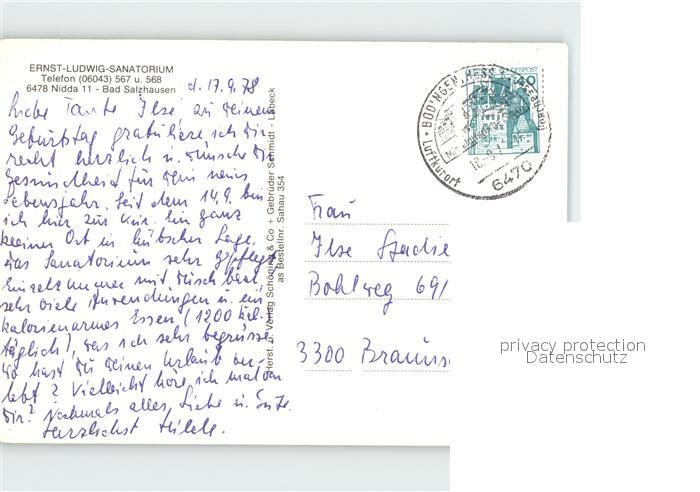 ERNST-LUDWIG-SANATORIUM
Telefon (06043) 567 u. 568
6478 Nidda 11 - Bad Salzhausen
d. 17.9.78
Liebe Tante Ilse, zu Deinem
Geburtstag gratuliere ich Dir
recht herzlich u. wünsche Dir
Gesundheit für Dein neues
Lebensjahr. Seit dem 14.9. bin
ich hier zur Kur. Ein ganz
kleiner Ort in hübscher Lage.
Das Sanatorium sehr gepflegt
Einzelzimmer mit Duschbad,
sehr viele Anwendungen u. ein
kalorienarmes Essen (1200 Kal.
täglich), was ich sehr begrüsse.
Wo hast Du Deinen Urlaub ver-
lebt? Vielleicht höre ich mal von
Dir? Nochmals alles Liebe u. Gute.
Herzlichst Hilde.
Herst. u. Verlag Schöning & Co + Gebrüder Schmidt · Lübeck
as Bestellnr. Sahau 354
BÜDINGEN, HESS
Luftkurort
18.-9.7
6470
BUNDESPOST
40
Frau
Ilse
Bohlweg 69/
3300 Brauns
privacy protection
Datenschutz